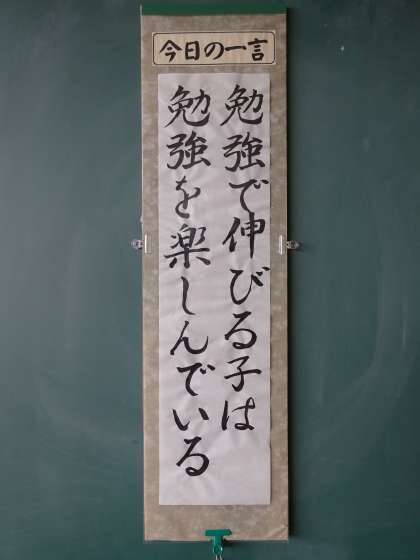 今日の一言
勉強で伸びる子は
勉強を楽しんでいる